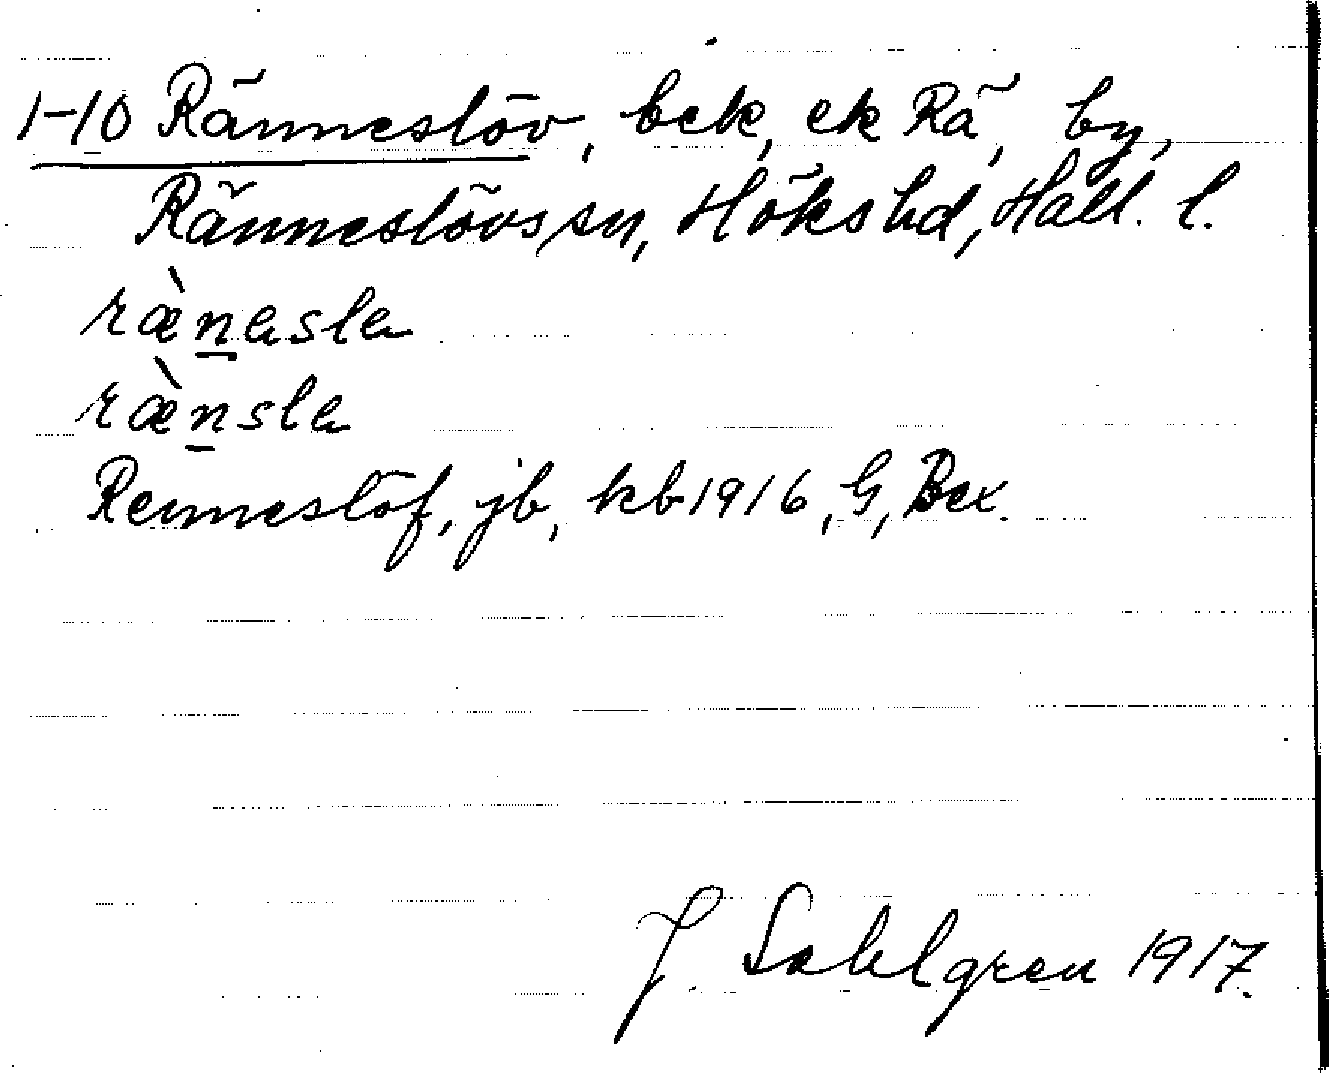 1-10 Ränneslöv, bek, ek Rä, by,
Ränneslövs sn, Höks hd, Hall. l.
ràenasla
ràensla
Renneslöf, jb, kb 1916, G, Bex.
J. Sahlgren 1917.